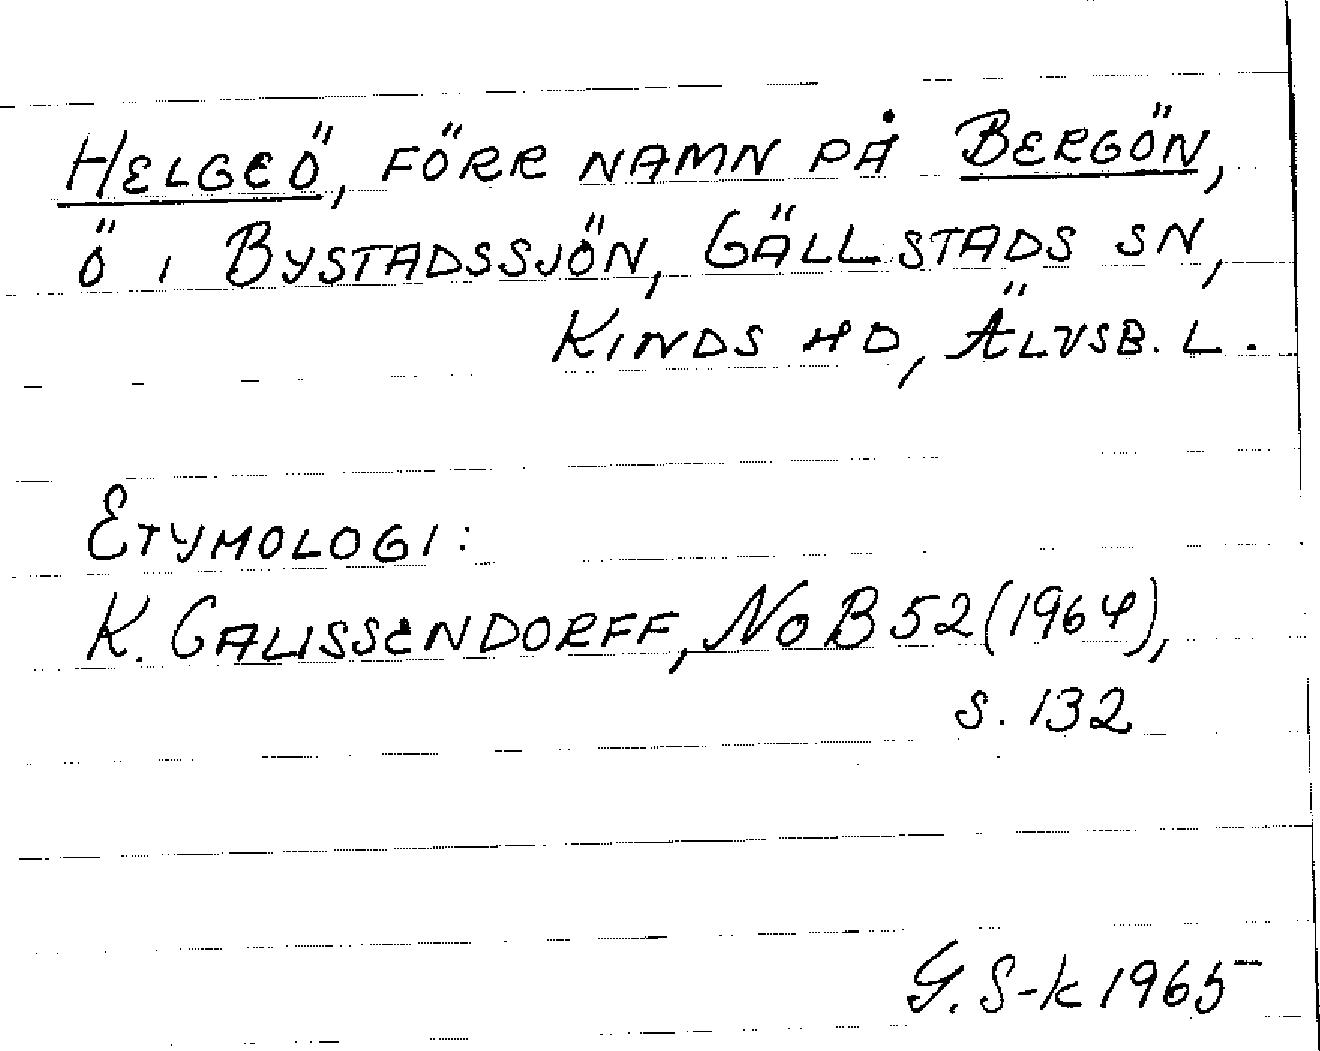 HELGEÖ, FÖRR NAMN PÅ BERGÖN,
Ö I BYSTADSSJÖN, GÄLLSTADS SN,
KINDS HD, ÄLVSB. L.
ETYMOLOGI:
K. GAUSSENDORFF, NoB 52 (1964),
S. 132
G. S-k 1965